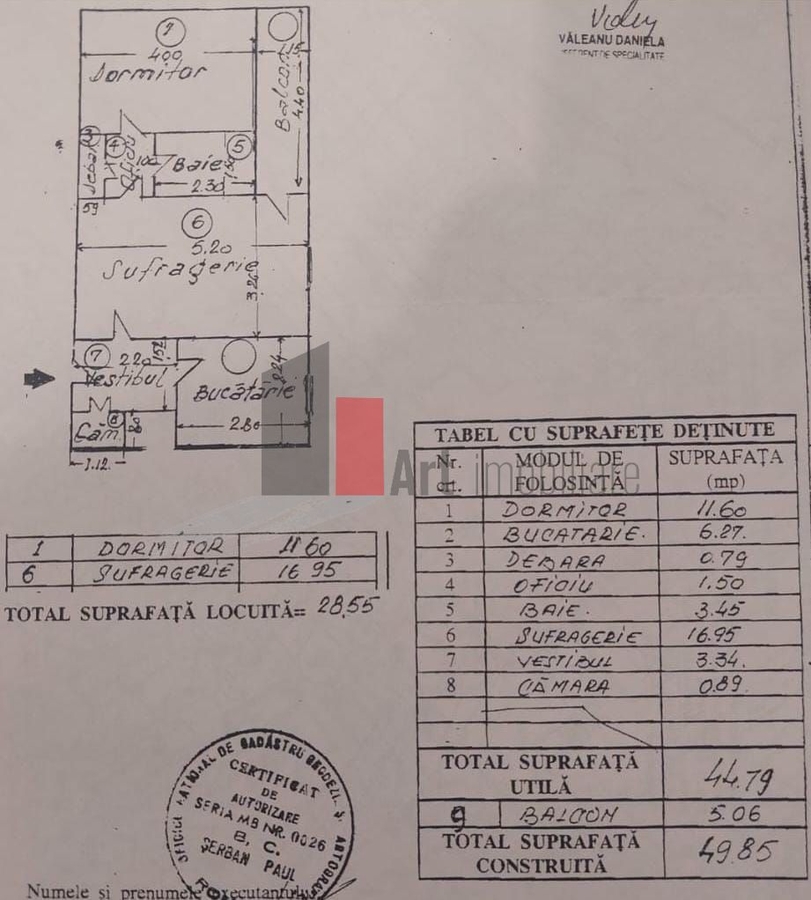 VĂLEANU DANIELA
1
400
Dormitor
1.15
Balcon
4.40
4
Oficiu
100
Baie
5
2.30
Debara
59
6
5.20
Sufragerie
3.26
7
220
152
Vestibul
Bucătărie
2.24
2.80
8
Căm.
80
1.12.
Art imobiliare
TABEL CU SUPRAFEȚE DEȚINUTE
Nr. crt. MODUL DE FOLOSINȚĂ SUPRAFAȚA (mp)
1 DORMITOR 11.60
2 BUCATARIE. 6.27.
3 DEBARA 0.79
4 OFICIU 1.50
5 BAIE. 3.45
6 SUFRAGERIE 16.95
7 VESTIBUL 3.34.
8 CĂMARA 0.89.
TOTAL SUPRAFAȚĂ UTILĂ 44.79
9 BALCON 5.06
TOTAL SUPRAFAȚĂ CONSTRUITĂ 49.85
1 DORMITOR 11.60
6 SUFRAGERIE 16.95
TOTAL SUPRAFAȚĂ LOCUITĂ= 28,55
CERTIFICAT
DE
AUTORIZARE
SERIA MB NR. 0026
B, C.
ȘERBAN PAUL
Numele și prenumele executantului